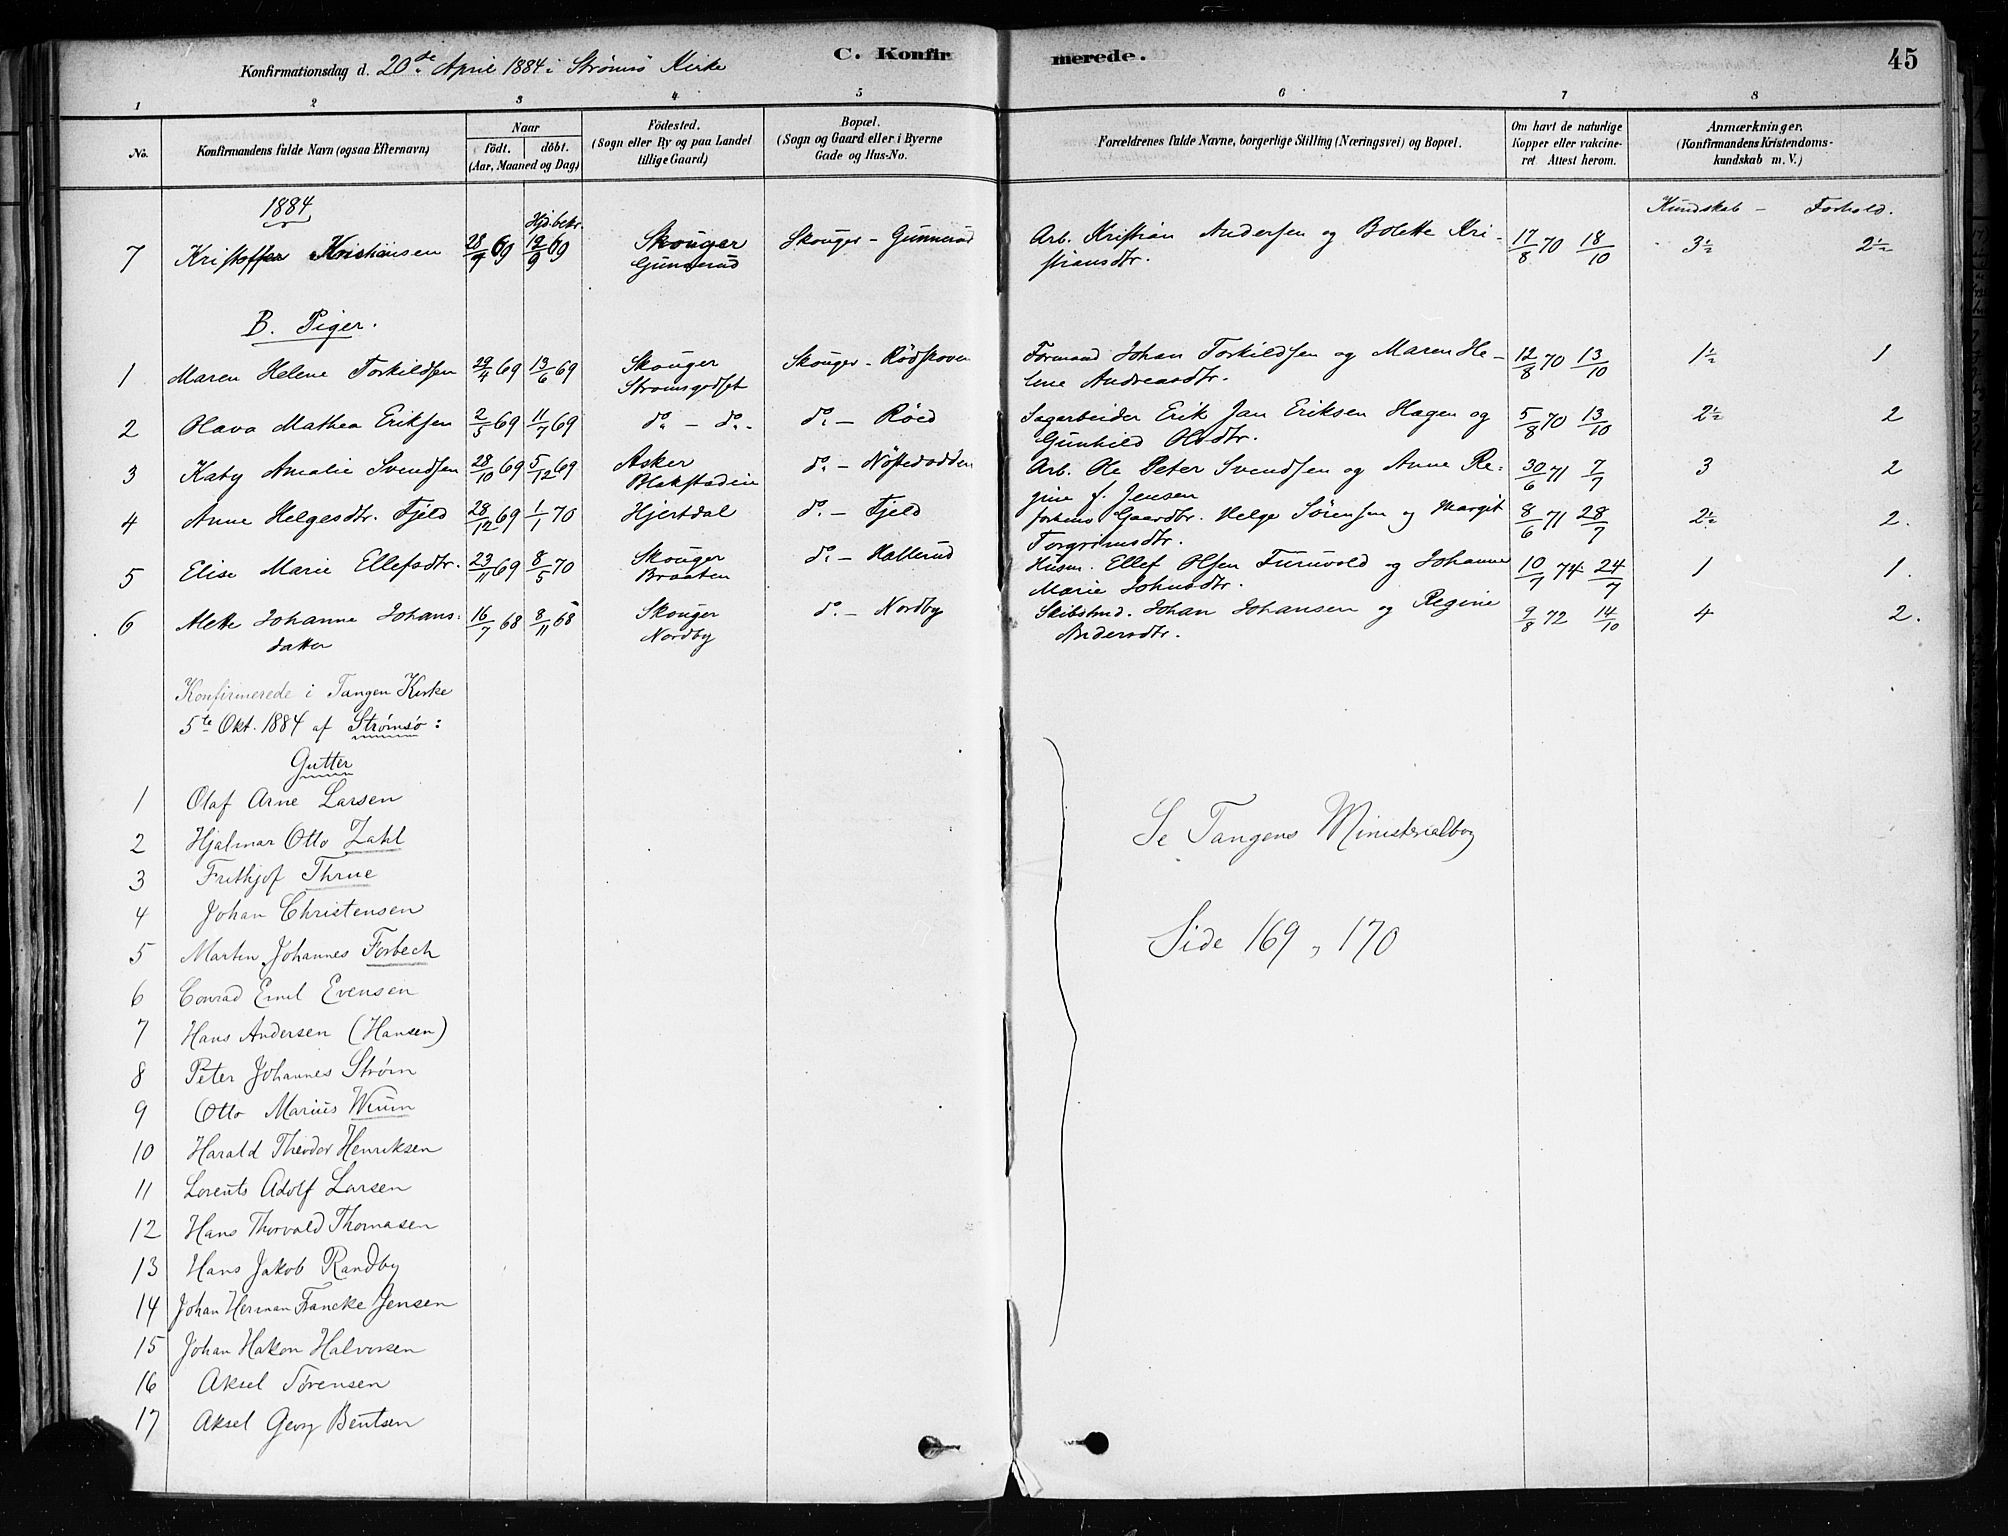 C. Konfirmerede. 45
Konfirmationsdag d. 20de April 1884 i Strømsø Kirke
1 2 3 4 5 6 7 8
No. Konfirmandens fulde Navn (ogsaa Efternavn) Naar födt. döbt. (Aar, Maaned og Dag) Födested. (Sogn eller By og paa Landet tillige Gaard) Bopæl. (Sogn og Gaard eller i Byerne Gade og Hus-No. Forældrenes fulde Navne, borgerlige Stilling (Næringsvei) og Bopæl. Om havt de naturlige Kopper eller vakcineret Attest herom. Anmærkninger. (Konfirmandens Kristendomskundskab m. V.)
1884 Hjd. bekr. Kundskab – Forhold.
7 Kristoffer Kristiansen 28/7 69 12/9 69 Skouger Skouger – Gunnerud Arb. Kristian Andersen og Bolette Kri- 17/8 70 18/10 3½ 2½
Gunnerud stiansdtr.
B. Piger.
1 Maren Helene Torkildsen 29/4 69 13/6 69 Skouger Skouger – Rødskoven Formand Johan Torkildsen og Maren He- 12/8 70 13/10 1½ 1
Strømsgodset lene Andreasdtr.
2 Olava Mathea Eriksen 2/5 69 11/7 69 do – do. do – Røed Sagarbeider Erik Jan Eriksen Hagen og 5/8 70 13/10 2½ 2
Gunhild Olsdtr.
3 Katy Amalie Svendsen 28/10 69 5/12 69 Asker do – Nøstedodden Arb. Ole Peter Svendsen og Anne Re- 30/6 71 7/7 3 2
Blakstadeie gine f. Jensen
4 Anne Helgesdtr. Fjeld 28/12 69 1/1 70 Hjertdal do – Fjeld Gaardbr. Helge Sörensen og Margit 8/6 71 28/7 2½ 2.
Torgrimsdtr.
5 Elise Marie Ellefsdtr. 23/11 69 8/5 70 Skouger do – Hallerud Husm. Ellef Olsen Furuvold og Johanne 10/7 74 24/7 1 1.
Braaten Marie Johnsdtr.
6 Mette Johanne Johans- 16/7 68 8/11 68 Skouger do – Nordby Skibstmd. Johan Johansen og Regine 9/8 72 14/10 4 2.
datter Nordby Andersdtr.
Konfirmerede i Tangen Kirke
5te Okt. 1884 af Strømsø:
Gutter
1 Olaf Arne Larsen
2 Hjalmar Otto Zahl
3 Frithjof Thrue
4 Johan Christensen
5 Martin Johannes Forbech
6 Conrad Emil Evensen
7 Hans Andersen (Hansen)
8 Peter Johannes Strøm
9 Otto Marius Wium
10 Harald Theodor Henriksen
11 Lorents Adolf Larsen
12 Hans Thorvald Thomasen
13 Hans Jakob Randby
14 Johan Herman Francke Jensen
15 Johan Hakon Halvorsen
16 Aksel Sörensen
17 Aksel Georg Bentsen
Se Tangens Ministerialbog
Side 169, 170